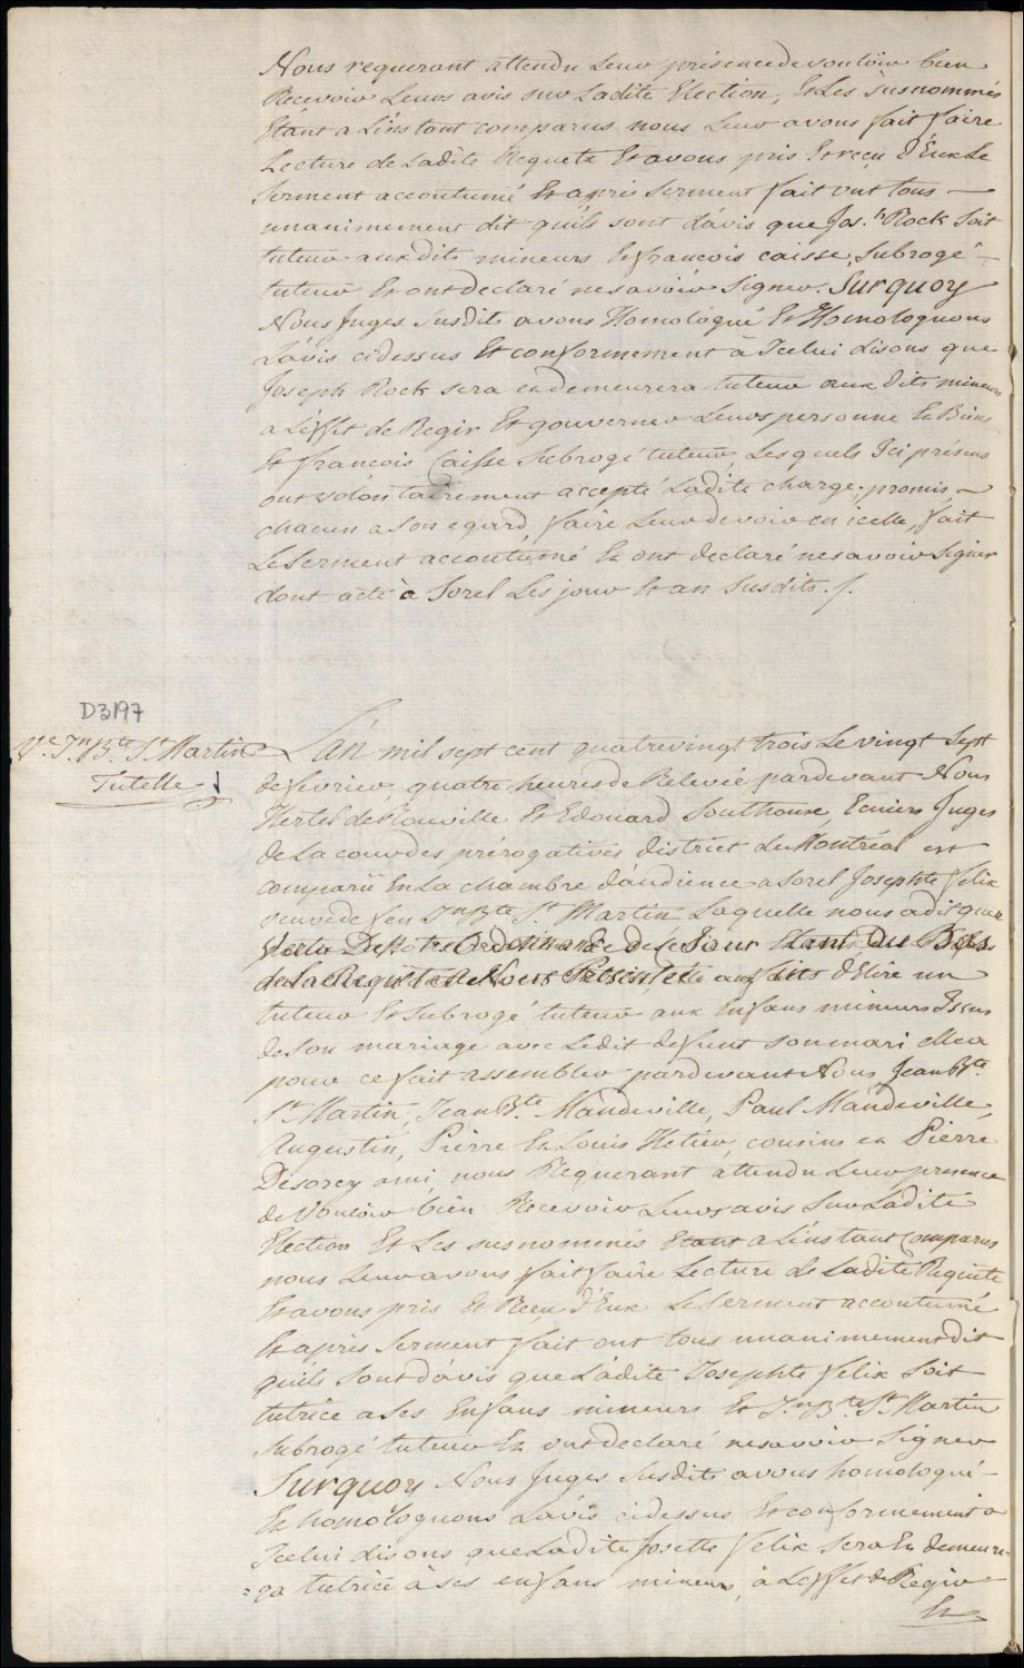 Nous requerant attendu Leur présence de vouloir bien
Recevoir Leurs avis sur Ladite Election, Et Les susnommés
Etant a L'instant comparus nous Leur avons fait faire
Lecture de Ladite Requete Et avons pris Et reçu d'Eux Le
Serment accoutumé Et après Serment fait ont tous —
unanimement dit quils sont d'avis que Jos.h Rock Soit
tuteur aux dits mineurs Et francois caisse, Subrogé —
tuteur Et ont declaré ne savoir Signer. Surquoy
Nous Juges Susdits avons Homologué Et Homologuons
L'avis cidessus Et conformement à Icelui disons que
Joseph Rock sera et demeurera tuteur aux Dits mineurs
a L'effet de Regir Et gouverner Leurs personne Et Biens
Et francois Caisse Subrogé tuteur, Les quels Ici présens
ont volontairement accepté Ladite charge, promis ~
chacun a Son egard, faire Leur devoir en icelle, fait
Le Serment accoutumé Et ont declaré ne savoir Signer
dont acte à Sorel Les jour Et an Susdits ./.
D3197
Ve. Jn. Bte St Martin
Tutelle
L'an mil sept cent quatrevingt trois Le vingt Sept
de fevrier, quatre heures de Relevée pardevant Nous
Hertel de Rouville Et Edouard Southouse, Ecuiers Juges
de La cour des prérogatives district de Montréal est
comparüe En La chambre d'audience a Sorel Josephte felix
veuve de feu Jn Bte St Martin Laquelle nous a dit qu'en
Vertu De Notre Ordonnance de ce Jour Etant Au Bas
de La Requête à Nous Présentée aux fins d'Elire un
tuteur Et Subrogé tuteur aux Enfans mineurs Issus
de Son mariage avec Ledit defunt Son mari Elle a
pour ce fait assembler pardevant Nous Jean Bte
St Martin, Jean Bte Mandeville, Paul Mandeville,
Augustin, Pierre Et Louis Hetier, cousins et Pierre
Désorcy ami, nous Requerant attendu Leur presence
de Vouloir bien Recevoir Leurs avis Sur Ladite
Election Et Les susnommés Etant a L'instant Comparus
nous Leur avons fait faire Lecture de Ladite Requête
Et avons pris Et Recu d'Eux Le Serment accoutumé
Et après Serment fait ont tous unanimement dit
quils Sont d'avis que Ladite Josephte felix Soit
tutrice a Ses Enfans mineurs Et Jn Bte St Martin
Subrogé tuteur Et ont declaré ne savoir Signer
Surquoy Nous Juges Susdits avons homologué —
Et homologuons L'avis cidessus Et conformement a
Icelui disons que Ladite Josette felix Sera Et demeure=
=ra tutrice à Ses enfans mineurs, à L'effet de Regir
Et